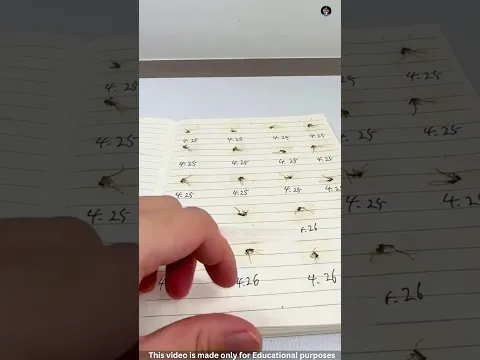 4.25 4.25
4.25 4.25 4.25 4.25 4.25 4.25
4.25 4.25 4.25 4.25
4.25 4.25 4.25 4.25
4.25 4.25
4.26
4.26 4.26
4.26
This video is made only for Educational purposes